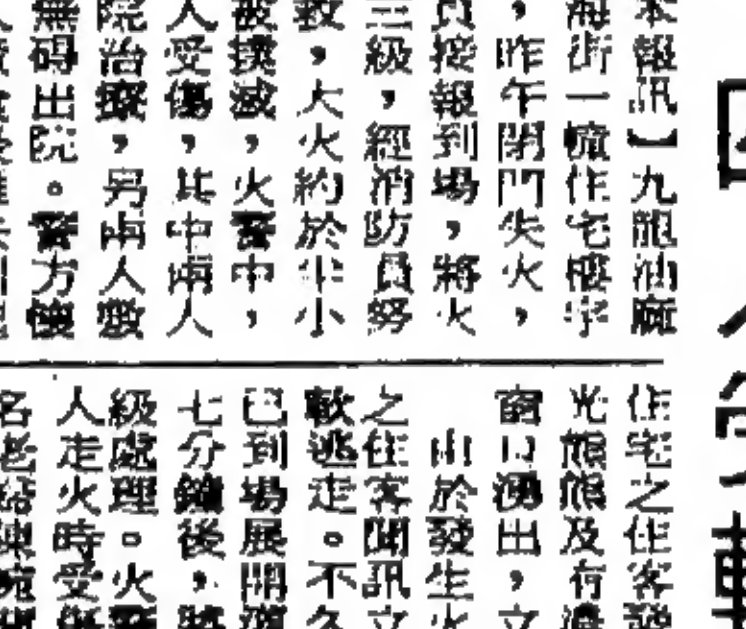 本報訊】九龍油麻
海街一幢住宅樓宇
，昨午閉門失火，
員接報到場，將火
三級，經消防員努
救，大火約於半小
被撲滅，火警中，
人受傷，其中兩人
院治療，另兩人敷
無碍出院。警方懷
住宅之住客發
光熊熊及有濃
窗口湧出，立
由於發生火
之住客聞訊立
軟逃走。不久
已到場展開灌
七分鐘後，將
級處理。火警
人走火時受傷
名老婦陳